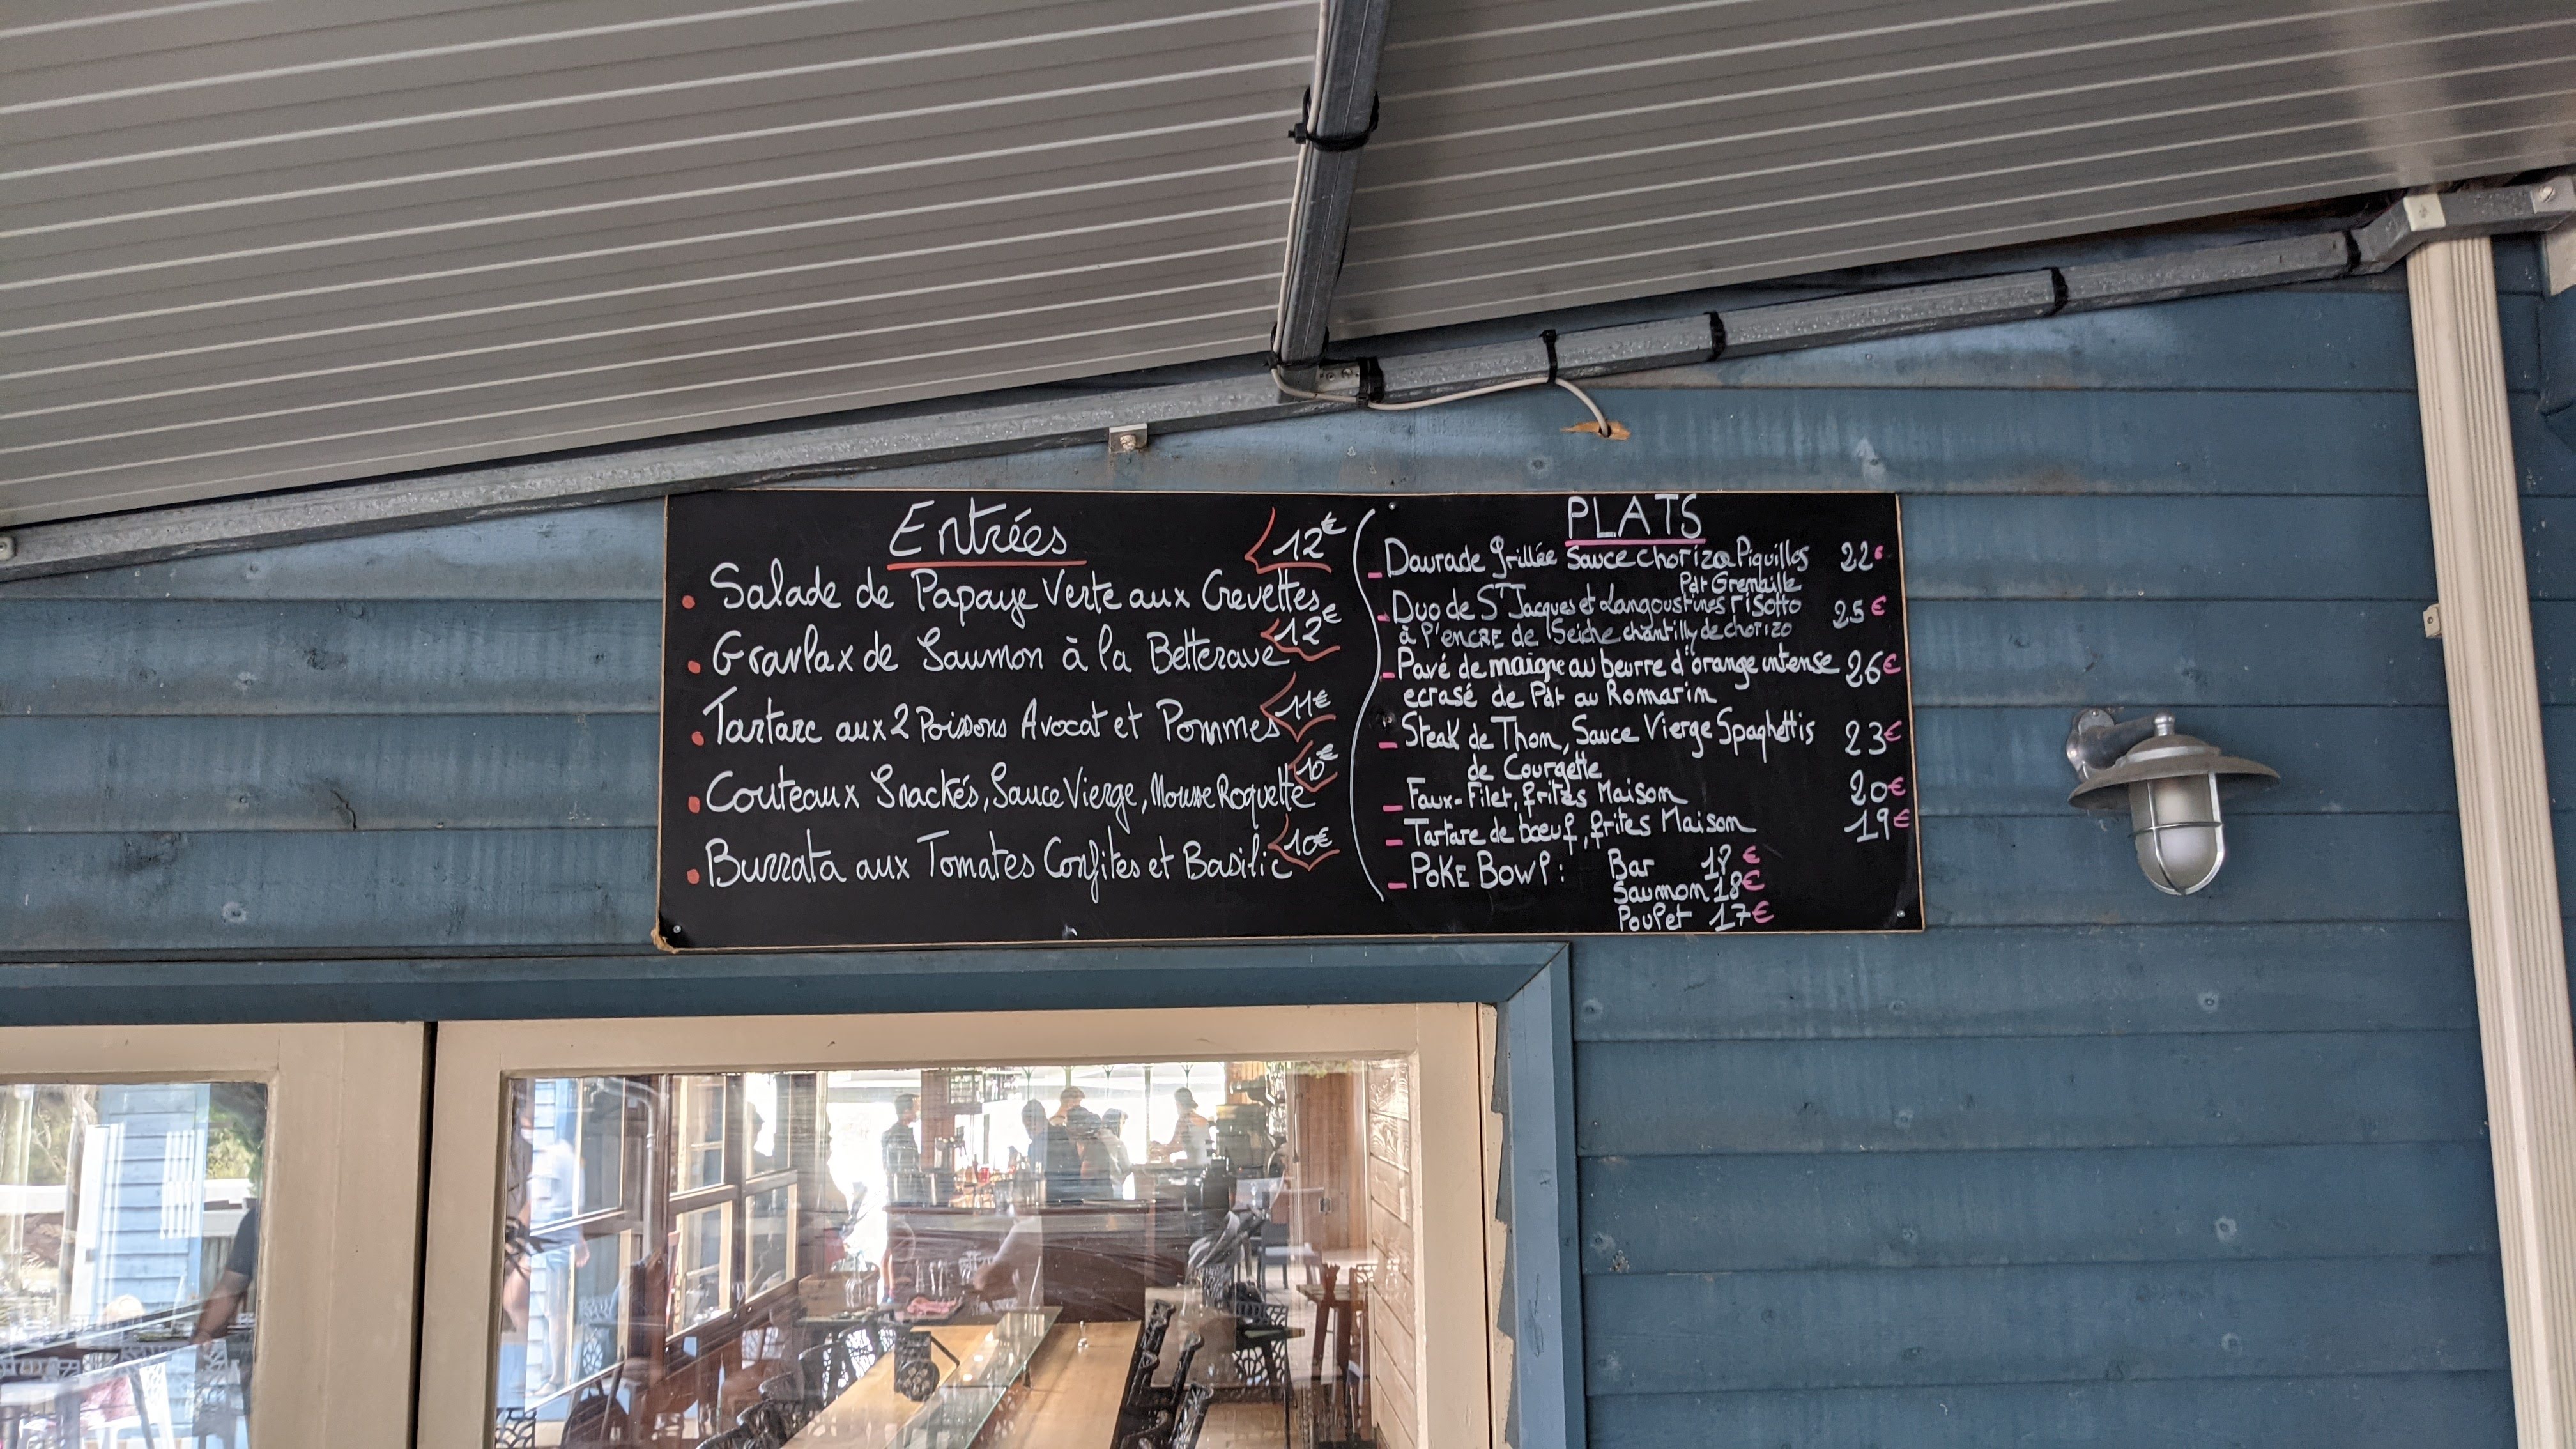 Entrées
12€
Salade de Papaye Verte aux Crevettes
12€
Gravlax de Saumon à la Betterave
11€
Tartare aux 2 Poissons Avocat et Pommes
10€
Couteaux Snackés, Sauce Vierge, Mousse Roquette
10€
Burrata aux Tomates Confites et Basilic
PLATS
Daurade Grillée Sauce chorizo Piquillos 22€
Pdt Grenaille
Duo de St Jacques et Langoustines risotto 25€
à l'encre de Seiche chantilly de chorizo
Pavé de maigre au beurre d'orange intense 26€
ecrasé de Pdt au Romarin
Steak de Thon, Sauce Vierge Spaghettis 23€
de Courgette
Faux-Filet, frites Maison 20€
Tartare de bœuf, frites Maison 19€
POKE BOWL: Bar €
Saumon 18€
Poulet 17€